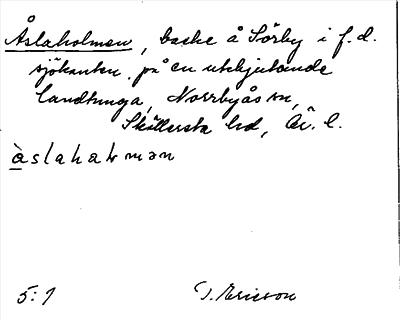 Åslaholmen, backe å Sörby i f.d.
sjökanten på en utskjutande
landtunga, Norrbyås sn,
Sköllersta hd, Ör. l.
àslahaɫmən
5:1
J. Ericson